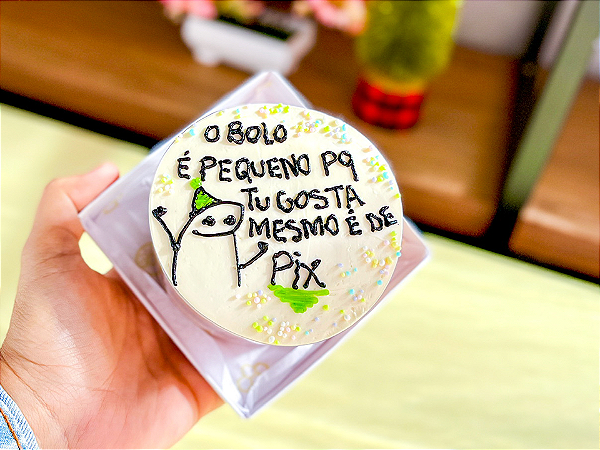 O BOLO
É PEQUENO PQ
TU GOSTA
MESMO É DE
Pix